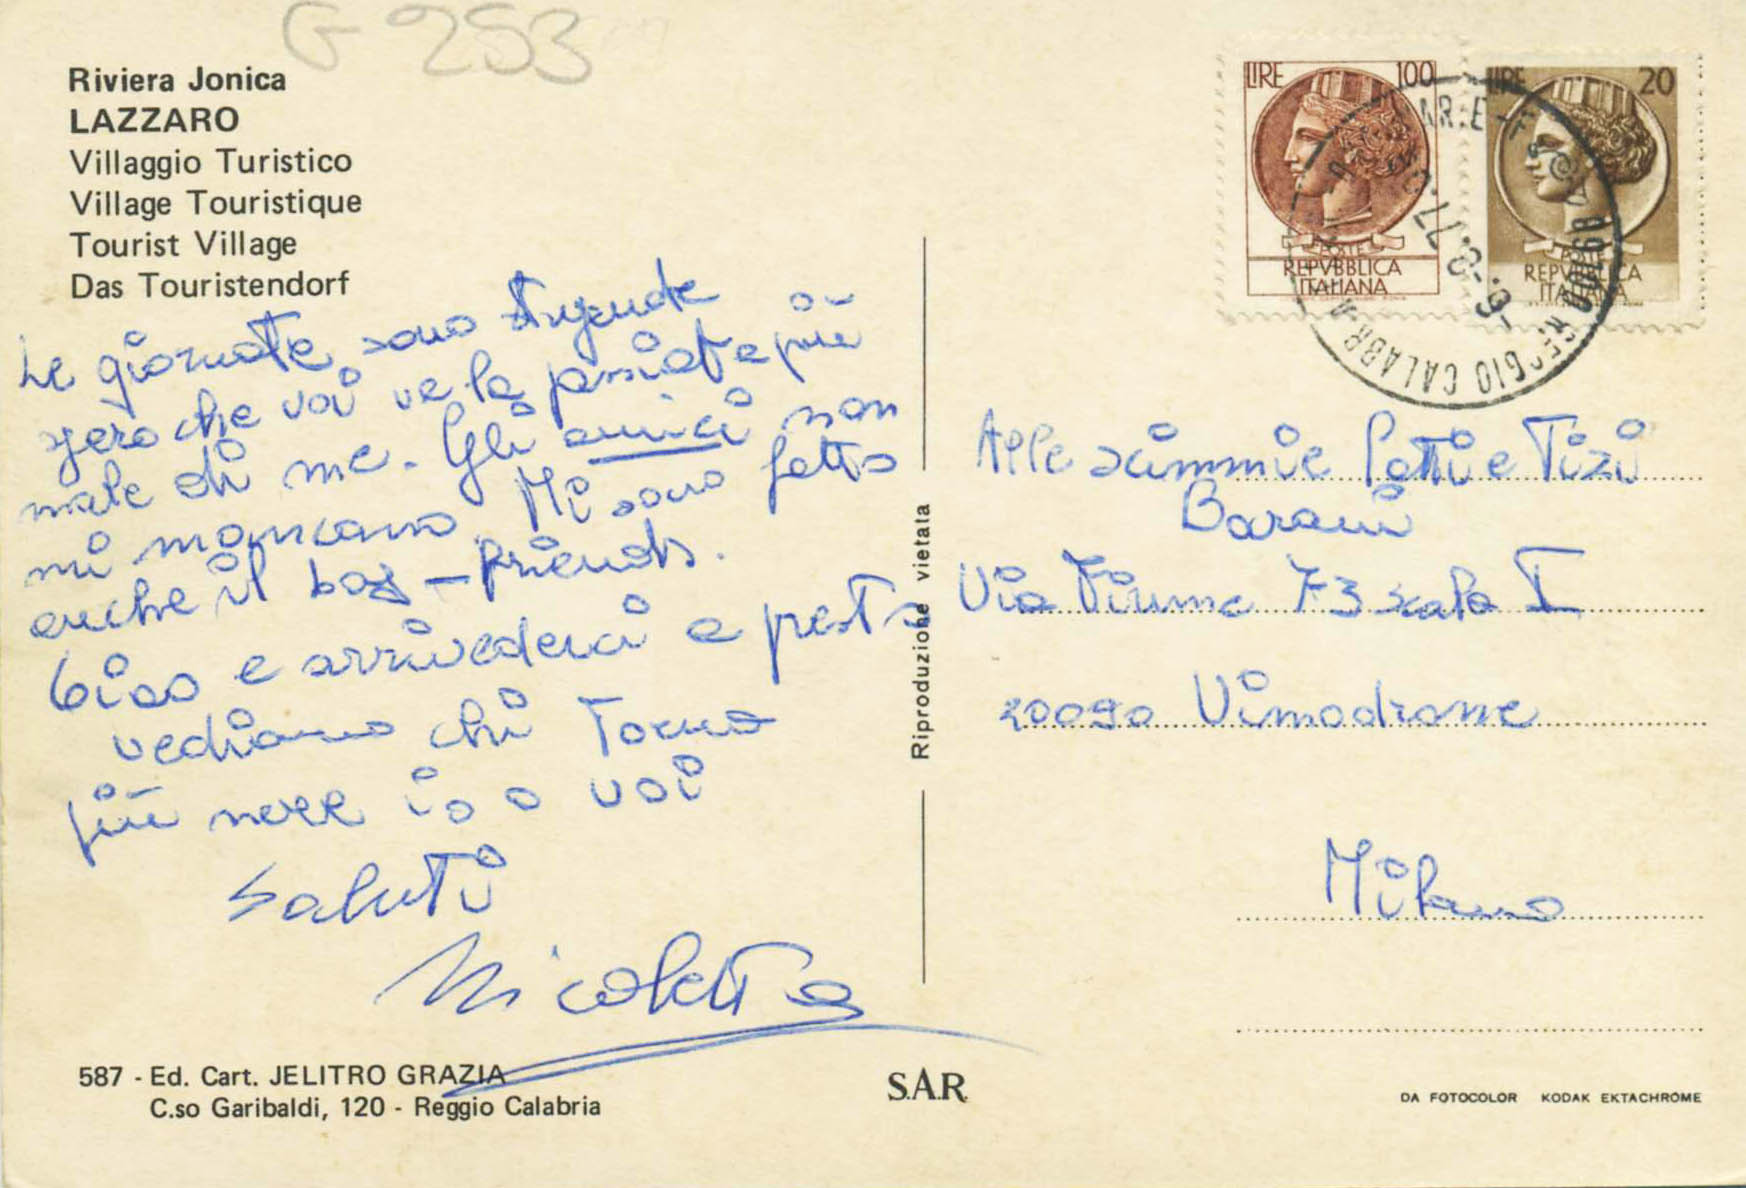 G 253
Riviera Jonica
LAZZARO
Villaggio Turistico
Village Touristique
Tourist Village
Das Touristendorf
Le giornate sono stupende
spero che voi ve la passiate più
male di me. Gli amici non
mi mancano. Mi sono fatta
anche il boy-friends.
Ciao e arrivederci a presto
vediamo chi torna
più nere io o voi
Saluti
Nicoletta
587 - Ed. Cart. JELITRO GRAZIA
C.so Garibaldi, 120 - Reggio Calabria
Riproduzione vietata
S.A.R.
LIRE 100
POSTE
REPVBBLICA
ITALIANA
LIRE 20
POSTE
REPVBBLICA
ITALIANA
REGGIO CALABR
-8.77
Alle scimmie Patti e Tizi
Barani
Via Fiume 73 scala I
20090 Vimodrone
Milano
DA FOTOCOLOR KODAK EKTACHROME